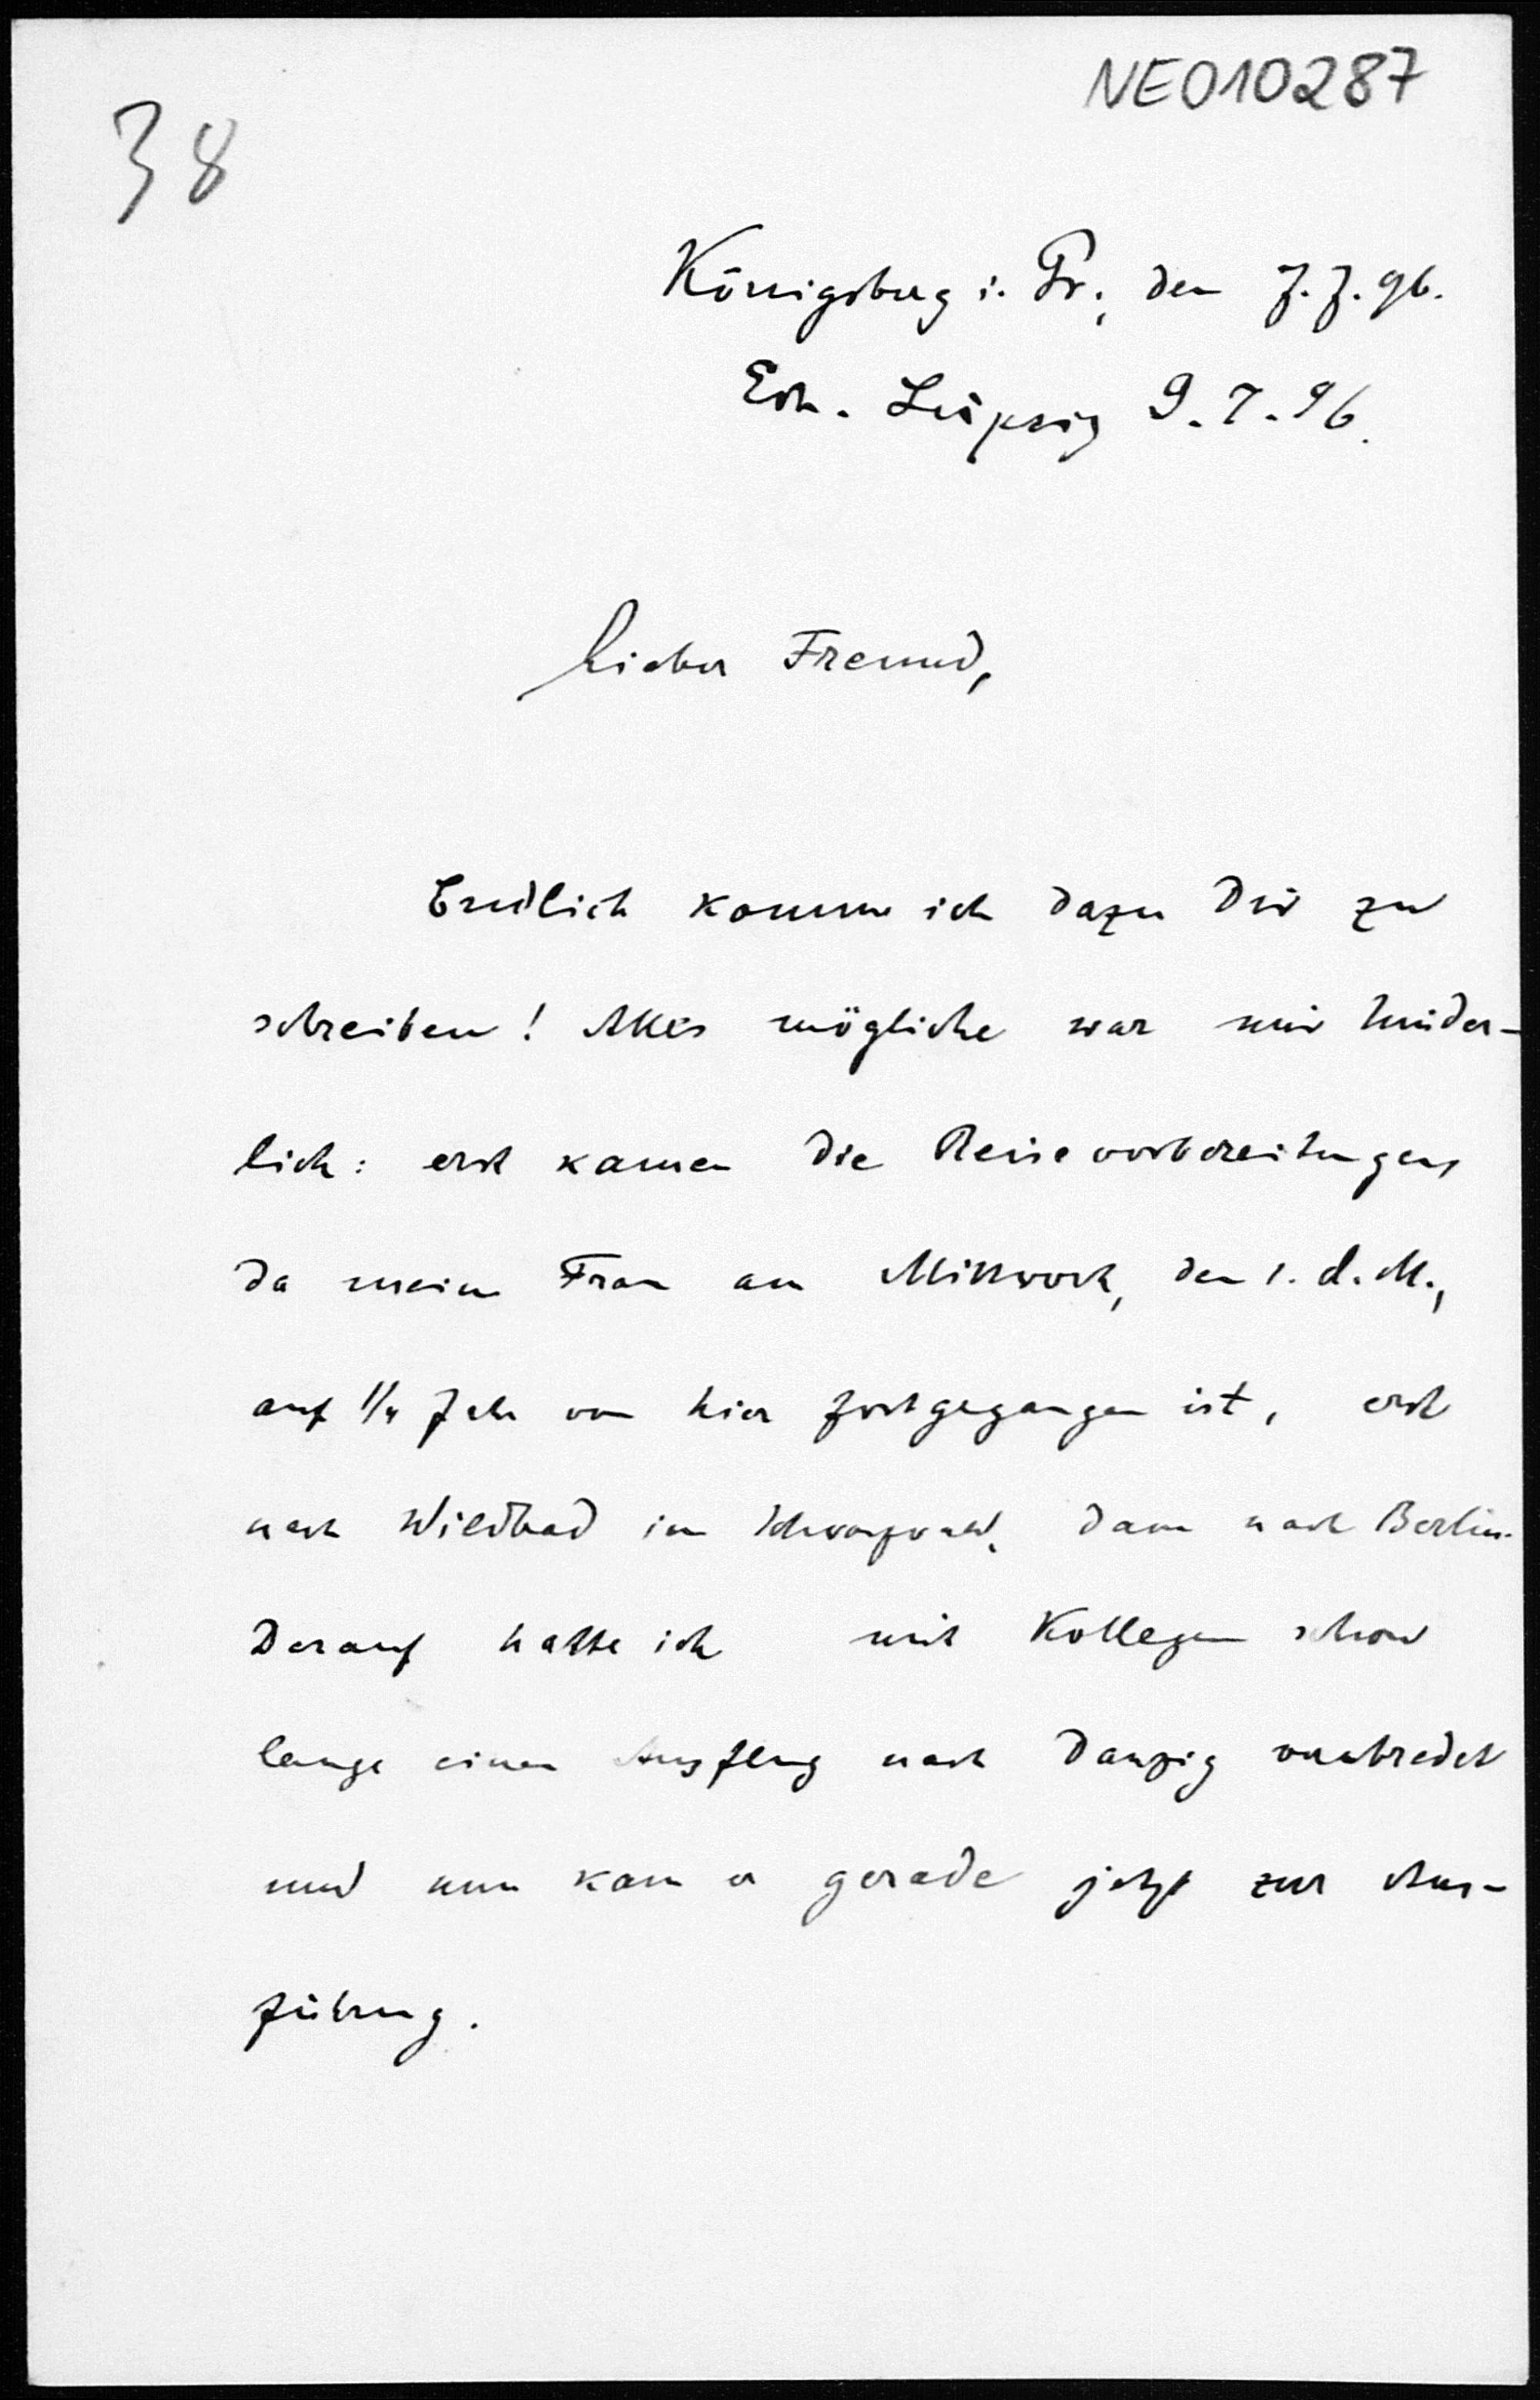 NE010287
38
Königsberg i. Pr., den 7. 7. 96.
Erh. Leipzig 9. 7. 96.
Lieber Freund,
Endlich komme ich dazu Dir zu
schreiben! Alles mögliche war mir hinder-
lich: erst kamen die Reisevorbereitungen,
da meine Frau am Mittwoch, den 1. d. M.,
auf 1/4 Jahr von hier fortgegangen ist, erst
nach Wildbad im Schwarzwald, dann nach Berlin.
Darauf hatte ich mit Kollegen schon
lange einen Ausflug nach Danzig verabredet
und nun kam er gerade jetzt zur Aus-
führung.